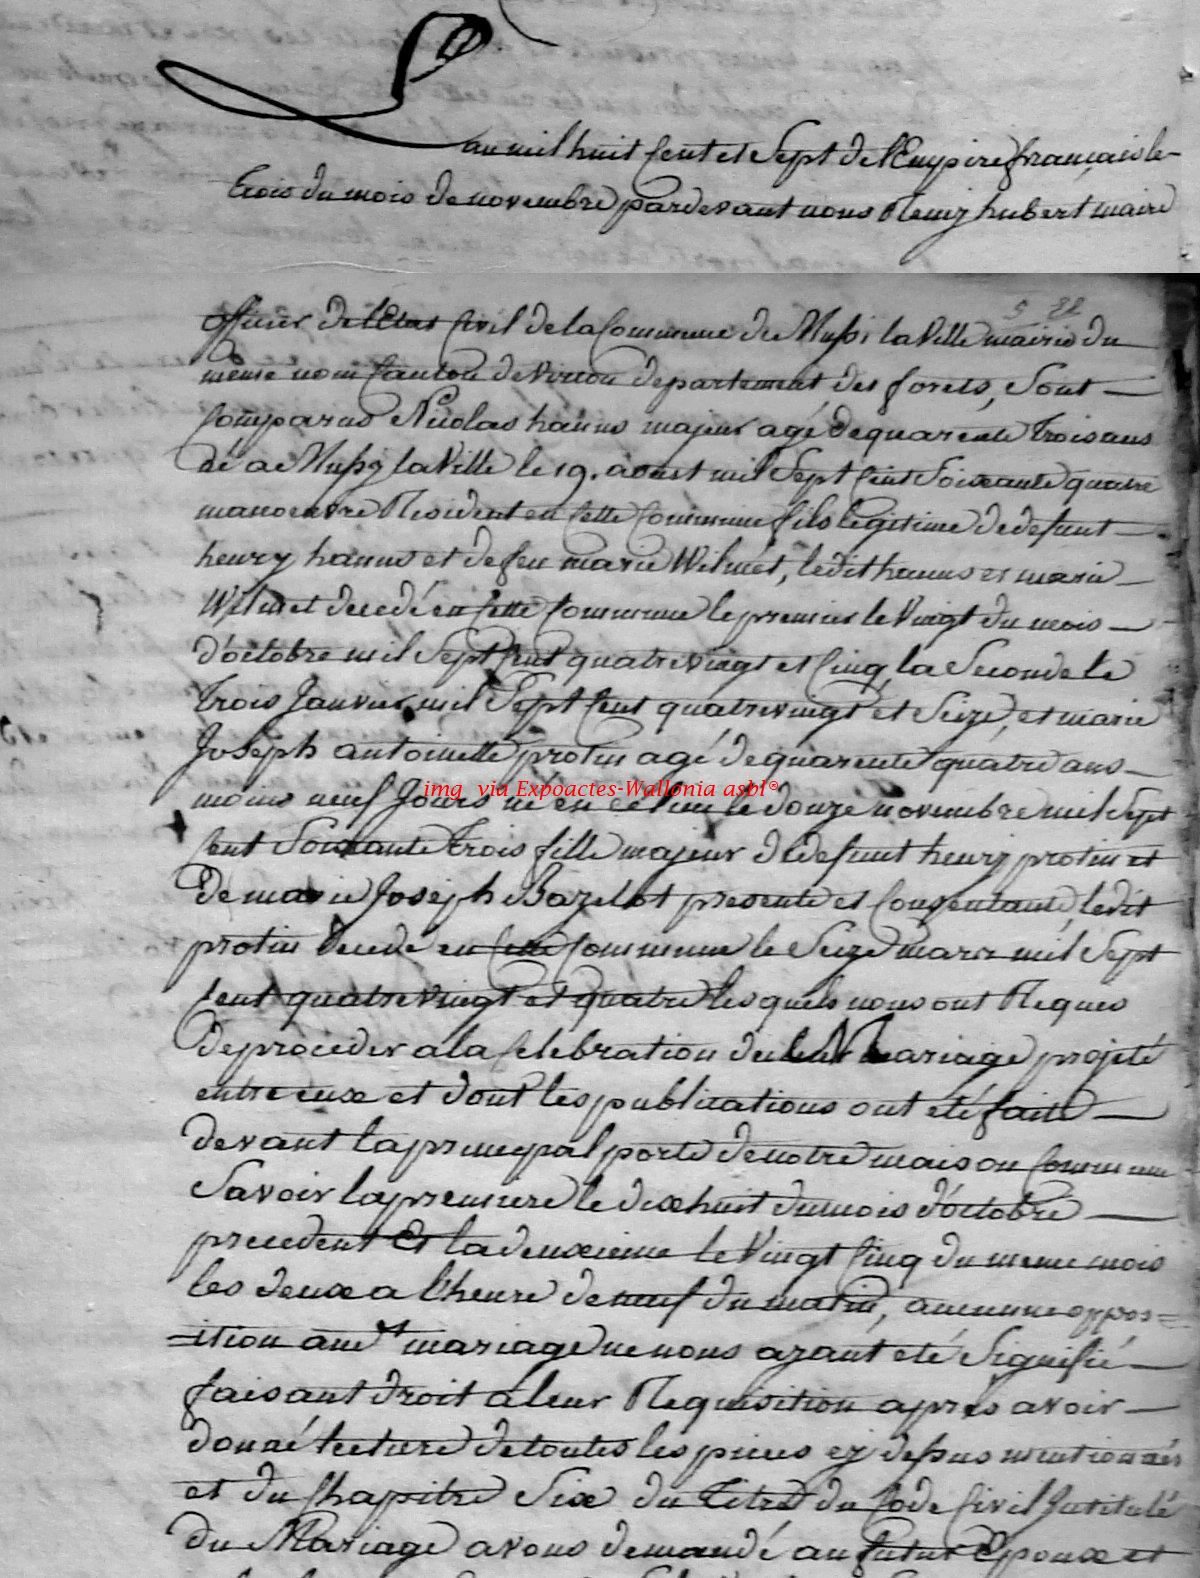 L'an mil huit Cent et Sept de l'Empire français le
trois du mois de novembre pardevant nous Remy hubert maire
5 22
officier de l'Etat Civil de la Commune de Mussi la Ville mairie du
même nom Canton de Virton departement des forets, Sont
Comparus Nicolas hanus majeur agé de quarente trois ans
né a Mussy la Ville le 19. aoust mil Sept Cent Soixante quatre
manoeuvre Resident en Cette Commune fils legitime de defunt
henry hanus et de feu marie Wilmet, ledit hanus et marie
Wilmet decedé en Cette Commune le premier le Vingt du mois
d'octobre mil Sept Cent quatre vingt et Cinq, la Seconde le
trois Janvier mil Sept Cent quatre vingt et Seize, et marie
Joseph antoinette protin agé de quarente quatre ans
moins neuf Jours né en ce lieu le douze novembre mil Sept
img via Expoactes-Wallonia asbl®
Cent Soixante trois fille majeur de defunt henry protin et
De marie Joseph Bazelot presente et Consentante, ledit
protin decedé en Cette Commune le Seize mars mil Sept
Cent quatre vingt et quatre les quels nous ont Requis
de proceder a la Celebration du leur Mariage projeté
entre eux et dont les publications ont été faite
devant la principal porte de notre maison Commune
Savoir la premiere le dixhuit du mois d'octobre
precedent Et la deuxieme le Vingt Cinq du meme mois
les deux a l'heure de neuf du matin, aucunne oppos=
=ition audt mariage ne nous ayant eté Signifié
faisant droit a leur Requisition apres avoir
donné lecture de toutes les pieces cy dessus mentionnés
et du Chapitre Six du Titre du Code Civil Intitulé
du Mariage avons demandé au futur Epoux et